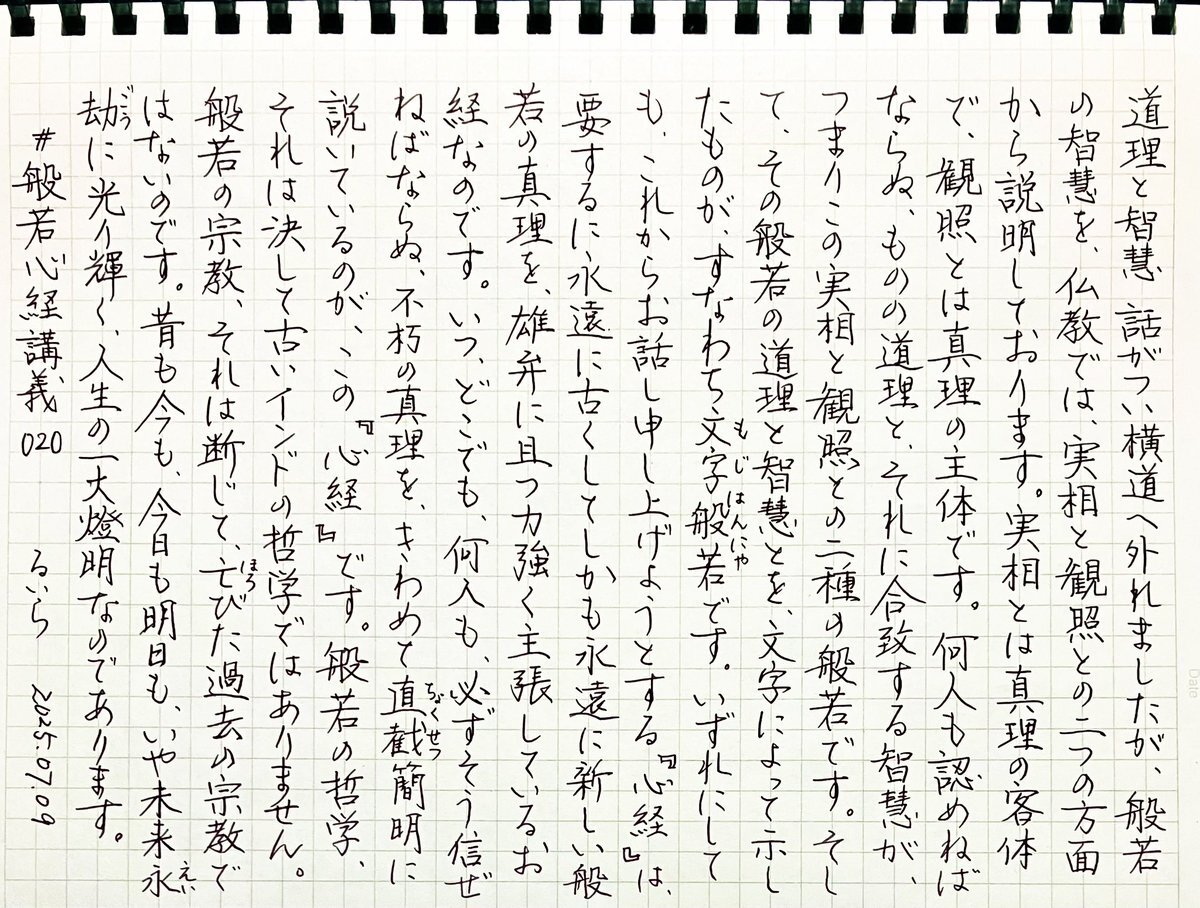 道理と智慧 話がつい横道へ外れましたが、般若
の智慧を、仏教では、実相と観照との二つの方面
から説明しております。実相とは真理の客体
で、観照とは真理の主体です。何人も認めねば
ならぬ、ものの道理と、それに合致する智慧が、
つまりこの実相と観照との二種の般若です。そし
て、その般若の道理と智慧とを、文字によって示し
たものが、すなわち文字般若です。いずれにして
もじはんにゃ
も、これからお話し申し上げようとする『心経』は、
要するに永遠に古くしてしかも永遠に新しい般
若の真理を、雄弁に且つ力強く主張しているお
経なのです。いつ、どこでも、何人も、必ずそう信ぜ
ねばならぬ、不朽の真理を、きわめて直截簡明に
ちょくせつ
説いているのが、この『心経』です。般若の哲学、
それは決して古いインドの哲学ではありません。
般若の宗教、それは断じて、亡びた過去の宗教で
ほろ
はないのです。昔も今も、今日も明日も、いや未来永
えい
劫に光り輝く、人生の一大燈明なのであります。
ごう
#般若心経講義 020 るいら 2025.07.09
Date